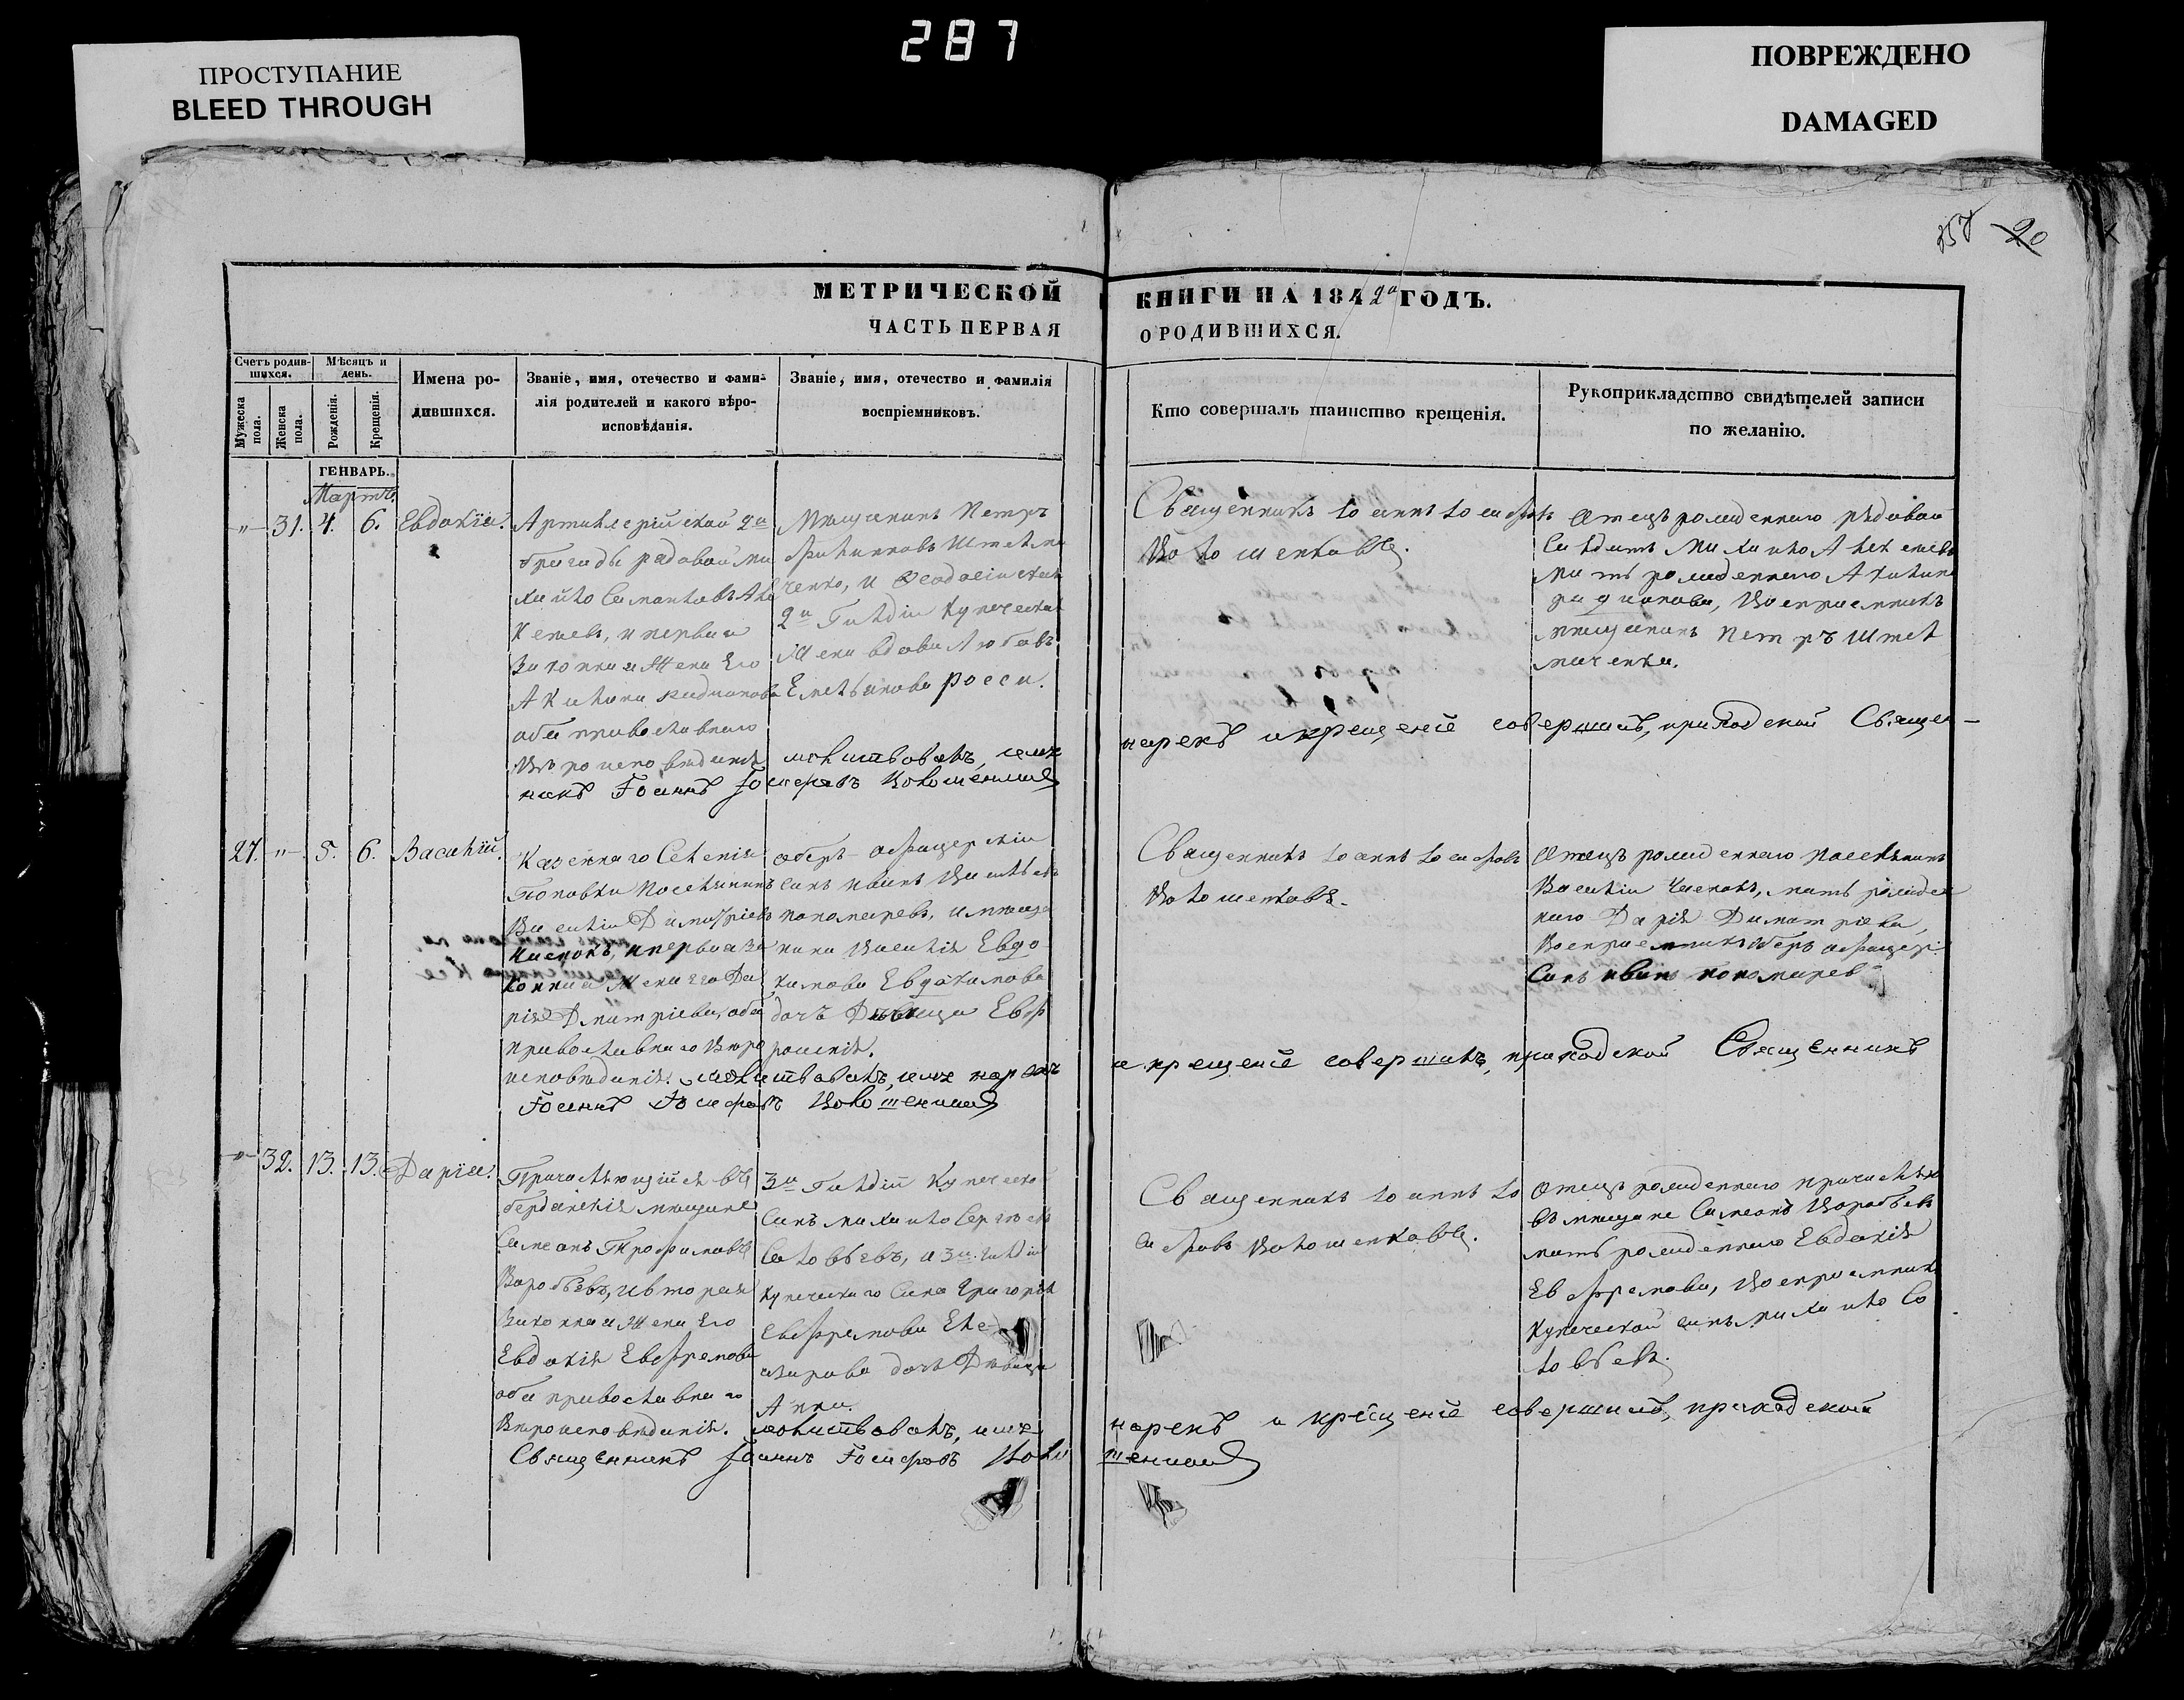 287
ПРОСТУПАНИЕ
BLEED THROUGH
ПОВРЕЖДЕНО
DAMAGED
257 20
МЕТРИЧЕСКОЙ
ЧАСТЬ ПЕРВАЯ
КНИГИ НА 1842а ГОДЪ.
О РОДИВШИХСЯ.
Счетъ родив-
шихся.
Мужеска
пола.
Женска
пола.
Мѣсяцъ и
день.
Рожденія.
Крещенія.
Имена ро-
дившихся.
Званіе, имя, отечество и фами-
лія родителей и какого вѣро-
исповѣданія.
Званіе, имя, отечество и фамилія
воспріемниковъ.
Кто совершалъ таинство крещенія.
Рукоприкладство свидѣтелей записи
по желанію.
ГЕНВАРЬ.
Мартъ.
"- 31. 4. 6. Евдокіа.
Артилерійской 2й
бригады рядовой Ми
хайло
и первая
Законная Жена Его
Акилина
оба православнаго
Вѣроисповеданія
Мещанинъ Петръ
и Феодосійскай
2й Гилдіи Купеческая
Жена вдова Любовь
Емельянова Росси.
Священникъ Іоаннъ Іосифовъ
Волошенковъ.
Отецъ рожденнаго рядовой
Михайло
мать рожденнаго Акилина
Воспріемникъ
мещанинъ Петръ
молитвовалъ, имя нарекъ и крещеніе совершилъ, приходской Священ-
никъ Іоаннъ Іосифовъ
27. "- 5. 6. Василій.
Казеннаго Селенія
Поповки Поселянинъ
Василій Димитріевъ
и первая За
конная Жена его Да
рія Дмитріева, оба
православнаго Вѣро
исповѣданія.
оберъ-офицерскій
сынъ Иванъ Васильевъ
Пономаревъ, и меща
нина Василія Евдо
кимова Евдокимова
дочь Девица Евф
росинія.
Священникъ Іоаннъ Іосифовъ
Волошенковъ.
Отецъ рожденнаго поселянинъ
Василій мать рожден
наго Дарія Димитріева,
Воспріемникъ оберъ офицер:
Сынъ Иванъ Пономаревъ
молитвовалъ, имя нарекъ и крещеніе совершилъ, приходской Священникъ
Іоаннъ Іосифовъ
"- 32. 13. 13. Дарія.
Причисляющійся въ
бердянскія мещане
Симеонъ Трофимовъ
Воробьевъ, и вторая
Законная Жена Его
Евдокія Евффремова
оба православнаго
Вѣроисповѣданія.
3й Гилдіи Купеческой
Сынъ Михайло Сергѣевъ
Соловьевъ, и 3й гилдіи
купеческаго Сына Григорія
Евффремова Еле-
азарова дочь Девица
Анна.
Священникъ Іоаннъ Іо
сифовъ Волошенковъ.
Отецъ рожденнаго причисляю
въ мещане Симеонъ Воробьевъ
мать рожденнаго Евдокія
Евффремова, Воспріемникъ
купеческой сынъ Михайло Со
ловьевъ.
молитвовалъ, имя нарекъ и крещеніе совершилъ, приходской
Священникъ Іоаннъ Іосифовъ